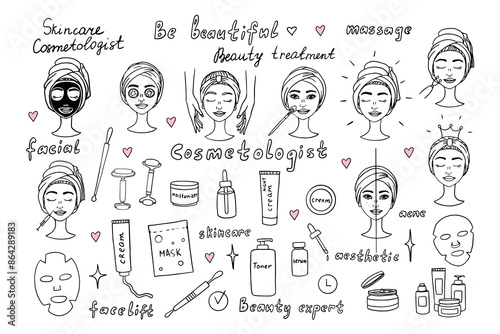 Skincare
Cosmetologist
Be beautiful
Beauty treatment
massage
facial
Cosmetologist
moisturizer
NIGHT
cream
cream
acne
cream
MASK
skincare
Toner
serum
aesthetic
facelift
Beauty expert
Adobe Stock
#864289183